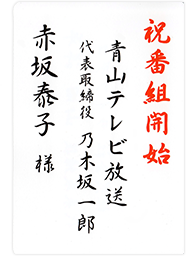 祝番組開始
青山テレビ放送
代表取締役 乃木坂一郎
赤坂泰子 様